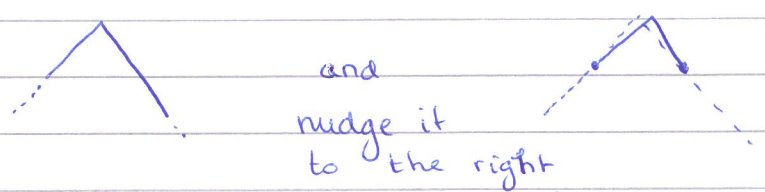 and
nudge it
to the right